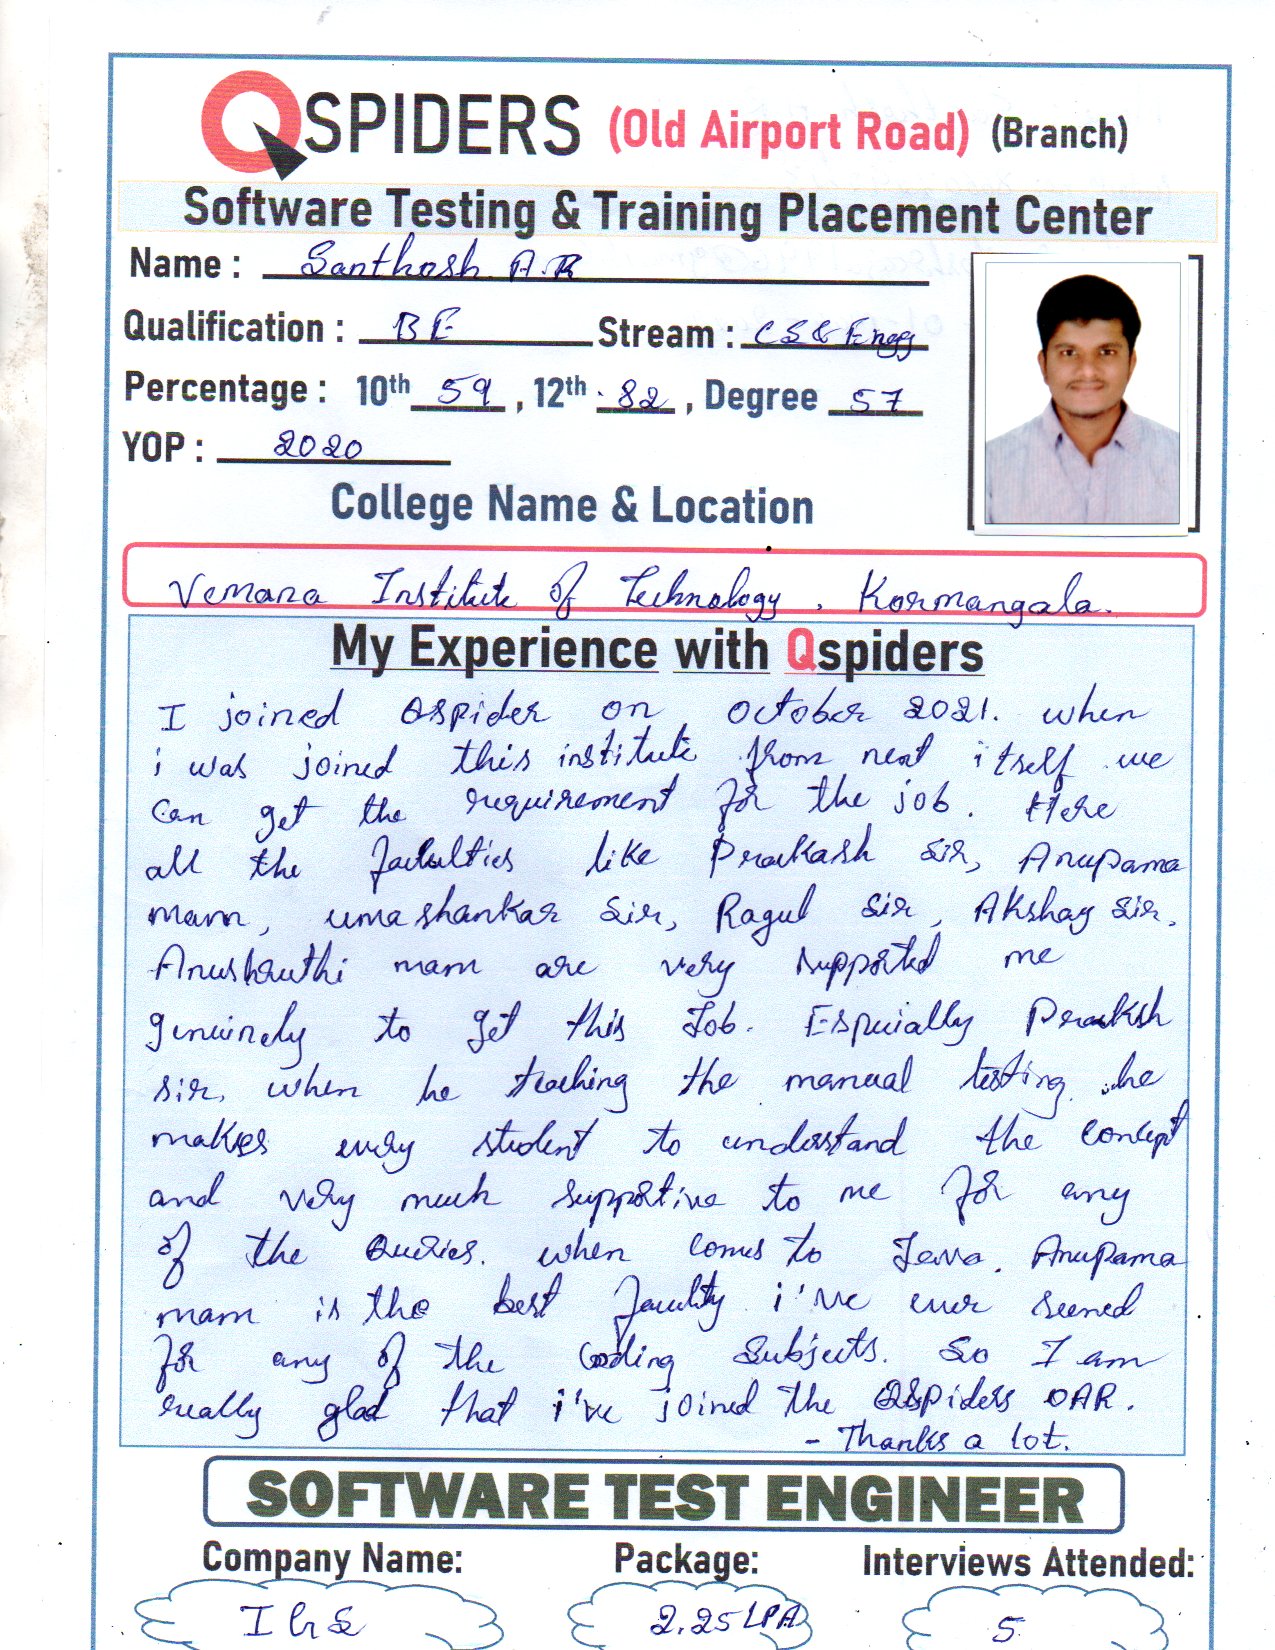 QSPIDERS (Old Airport Road) (Branch)
Software Testing & Training Placement Center
Name : Santhosh A.R
Qualification : BE Stream : CS & Engg
Percentage : 10th 59 , 12th 82 , Degree 57
YOP : 2020
College Name & Location
Vemana Institute of Technology, Kormangala.
My Experience with Qspiders
I joined Qspider on October 2021. when
i was joined this institute from next itself we
can get the requirement for the job. Here
all the faculties like Prakash sir, Anupama
mam, umashankar sir, Ragul sir, Akshay sir,
Anushruthi mam are very supported me
genuinely to get this Job. Especially Prakash
sir, when he teaching the manual testing he
makes every student to understand the concept
and very much supportive to me for any
of the Queries. when comes to Java. Anupama
mam is the best faculty i've ever seened
for any of the coding subjects. So I am
really glad that i've joined the QSpiders OAR.
- Thanks a lot.
SOFTWARE TEST ENGINEER
Company Name: Package: Interviews Attended:
2.25 LPA 5